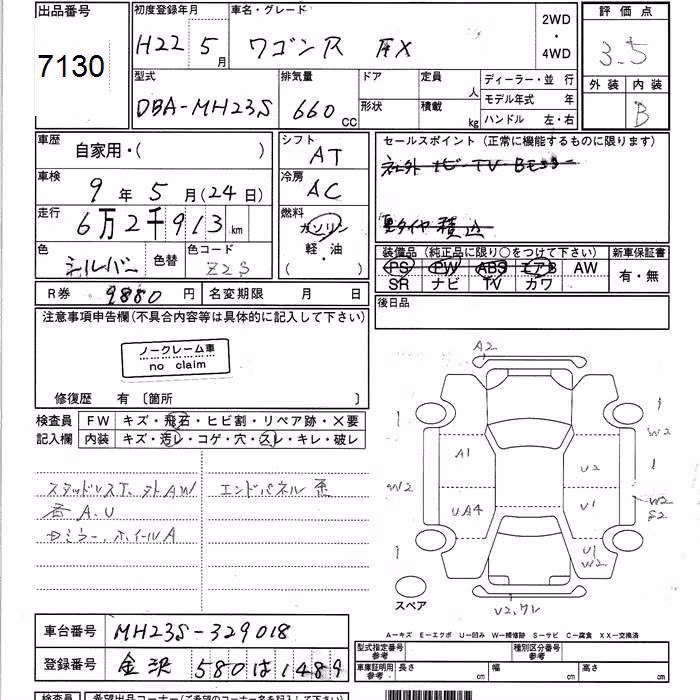 出品番号 初度登録年月 車名・グレード 2WD・4WD 評価点
7130 H22 5月 ワゴンR FX 3.5
外装 内装
B
型式 排気量 ドア 定員 人 ディーラー・並 行
DBA-MH23S 660cc 形状 積載 kg モデル年式 年
ハンドル 左・右
車歴 自家用・( )
シフト AT
セールスポイント (正常に機能するものに限ります)
社外ナビ TV
車検 9年5月(24日)
冷房 AC
走行 6万2千913km
燃料 ガソリン 軽・油 ( ・ )
夏タイヤ積込
色 シルバー 色替 色コード Z2S
装備品 (純正品に限り○をつけて下さい) 新車保証書
PS PW ABS エアB AW 有・無
SR ナビ TV カワ
R券 9880円 名変期限 月 日
後日品
注意事項申告欄(不具合内容等は具体的に記入して下さい)
ノークレーム車
no claim
修復歴 有 〔箇所 〕
検査員 FW キズ・飛石・ヒビ割・リペア跡・×要
記入欄 内装 キズ・汚レ・コゲ・穴・スレ・キレ・破レ
スタッドレスT、外AW エンドパネル歪
各A、U
ドミラー、ホイールA
A2
W2
A1 U2
W2 W2
S2
UA4 U1
U1
W2
スペア
U2、ワレ
A-キズ E-エクボ U-凹み W-補修跡 S-サビ C-腐食 XX-交換済
車台番号 MH23S-329018
登録番号 金沢 580 は 1489
型式指定番号 参考 種別区分番号 参考
車庫証明用 参考 長さ 幅 高さ
検査員 希望出品コーナー